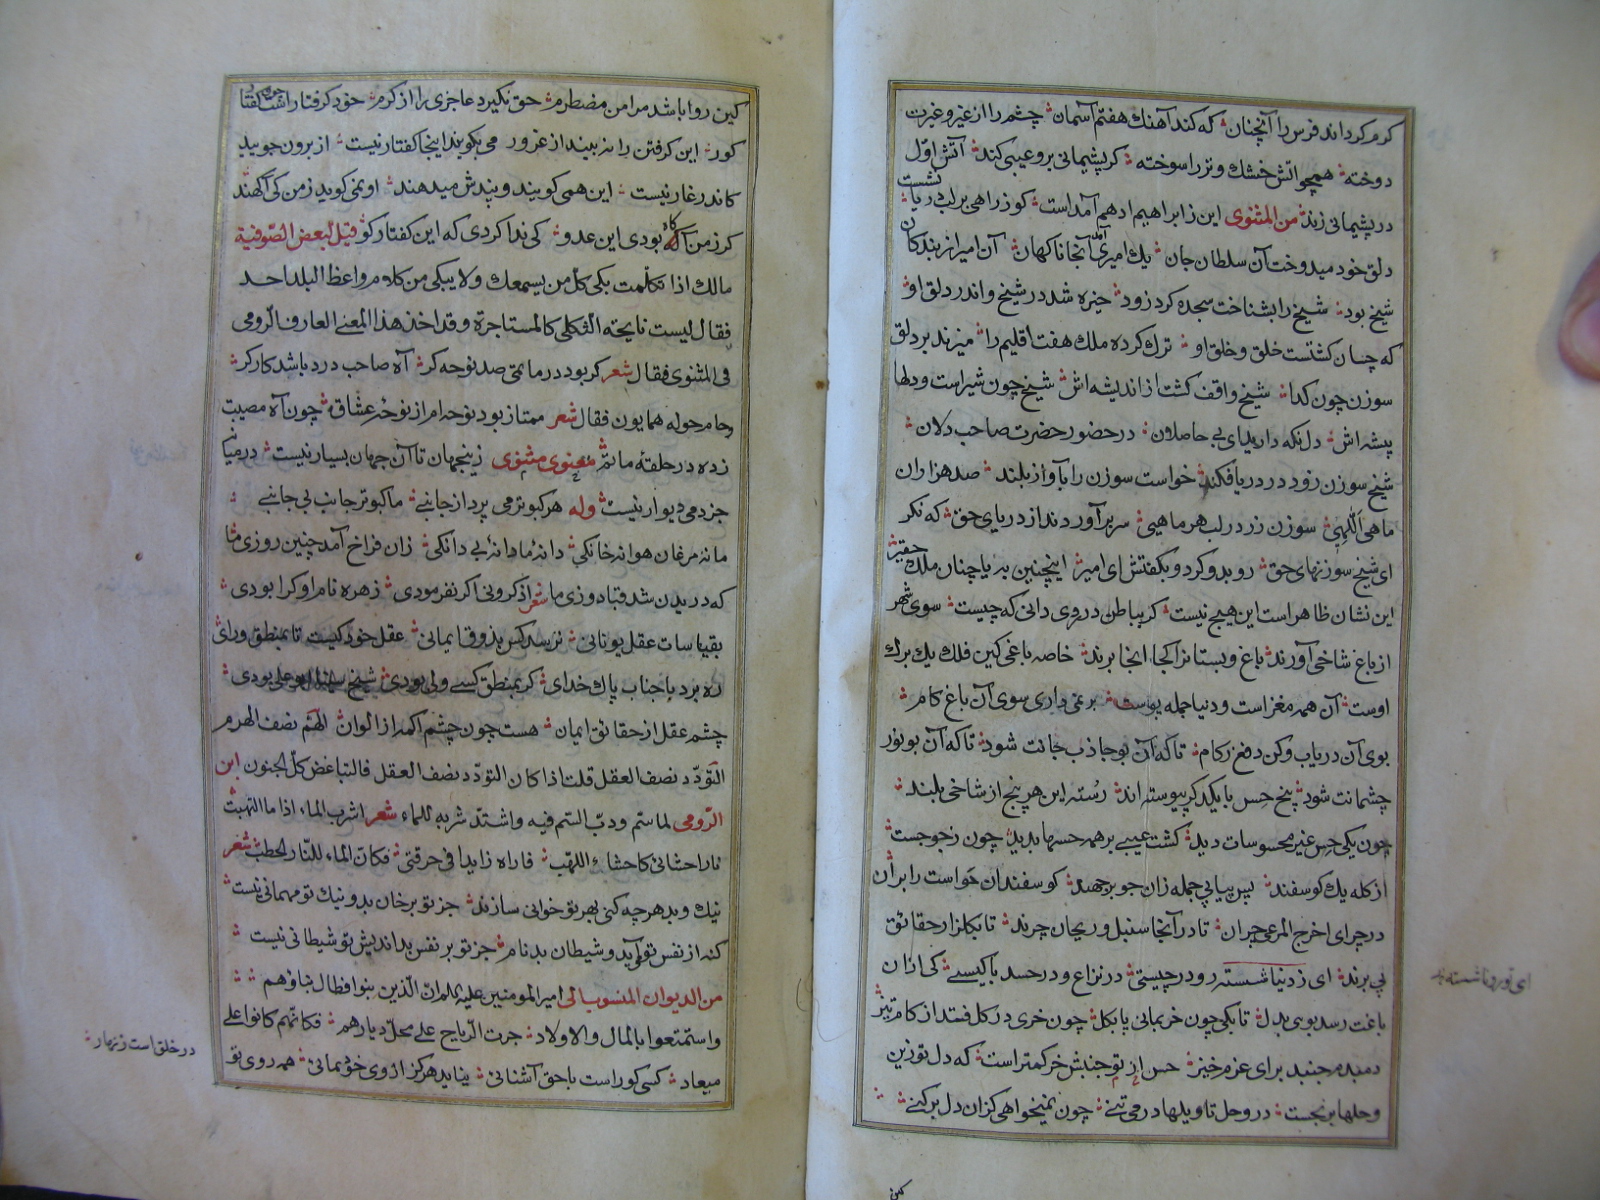 کرم کرداند فرس را آنچنان که کند آهنك هفتم آسمان چشم را از غیر و غیرت
دوخته همچو اتش خشك و تر را سوخته کر پشیمانی برو عیبی کند آتش اوّل
در پشیمانی زند من المثنوی این ز ابراهیم ادهم آمداست کو ز راهی بر لب دریا نشست
دلق خود میدوخت آن سلطان جان یك امیری آمد آنجا ناکهان آن امیر از بندکان
شیخ بود شیخ را بشناخت سجده کرد زود خیره شد در شیخ و اندر دلق او
که چسان کشتست خلق و خلق او ترك کرده ملك هفت اقلیم را میزند بر دلق
سوزن چون کدا شیخ واقف کشت از اندیشه اش شیخ چون شیر است و دلها
پیشه اش دل نکه دارید ای بی حاصلان در حضور حضرت صاحب دلان
شیخ سوزن زود در دریا فکند خواست سوزن را بآواز بلند صد هزاران
ماهی اللهیی سوزن زر در لب هر ماهیی سر بر آوردند از دریای حق که بکیر
ای شیخ سوزنهای حق رو بدو کرد و بکفتش ای امیر اینچنین به یا چنان ملك حقیر
این نشان ظاهر است این هیچ نیست کر بباطن در روی دانی که چیست سوی شهر
از باغ شاخی آورند باغ و بستانرا کجا انجا برند خاصه باغی کین فلك یك برك
اوست آن همه مغز است و دنیا جمله پوست بر نمی داری سوی آن باغ کام
بوی آن دریاب و کن دفع زکام تا که آن بو جاذب جانت شود تا که آن بو نور
چشمانت شود پنج حس با یکدکر پیوسته اند رسته این هر پنج از شاخی بلند
چون یکی حس غیر محسوسات دید کشت غیبی بر همه حسها پدید چون ز جو جست
از کله یك کوسفند پس پیاپی جمله زان جو بر جهند کوسفندان حواست را بران
در چرای اخرج المرعی چران تا در آنجا سنبل و ریحان چرند تا بکلزار حقائق
پی برند ای ز دنیا شسته رو در چیستی در نزاع و در حسد با کیستی کی ازان
باغت رسد بویی بدل تا بکی چون خر بمانی پا بکل چون خری در کل فتد از کام تیز
دمبدم جنبد برای عزم خیز حس از تو جنبش خر کمتر است که دل تو زین
وحلها بر نجست در وحل تاویلها در می تنی چون نمیخواهی کزان دل بر کنی
کین
کین روا باشد مرا من مضطرم حق نکیرد عاجزی را از کرم خود کرفتار است چون کفتار
کور این کرفتن را نه بیند از غرور می بکویند اینجا کفتار نیست از برون جویید
کاندر غار نیست این همی کویند و بندش میدهند او نمی کوید ز من کی آکهند
کر ز من آکاه بودی این عدو کی ندا کردی که این کفتار کو قیل لبعض الصوفیة
مالك اذا تکلمت بکی کل من یسمعك ولا یبکی من کلام واعظ البلد احد
فقال لیست نایحه الثکلی کالمستاجرة وقد اخذ هذا المعنی العارف الرومی
فی المثنوی فقال شعر کر بود در ماتمی صد نوحه کر آه صاحب درد باشد کارکر
و حام حوله همایون فقال شعر ممتاز بود نوحه ام از نوحه عشاق چون آه مصیبت
زده در حلقهٔ ماتم معنوی مثنوی زینجهان تا آن جهان بسیار نیست در میان
جز دمی دیوار نیست وله هر کبوتر می پرد از جانبی ما کبوتر جانب بی جانبی
ما نه مرغان هوا نه خانکی دانهٔ ما دانهٔ بی دانکی زان فراخ آمد چنین روزی ما
که دریدن شد قبا دوزی ما شعر
بقیاسات عقل یونانی نرسد کس بذوق ایمانی عقل خود کیست تا بمنطق و رای
ره برد با جناب پاك خدای کر بمنطق کسی ولی بودی شیخ بو علی بودی
چشم عقل از حقائق ایمان هست چون چشم اکمه از الوان الهم نصف الهرم
التودّد نصف العقل قلت اذا کان التودّد نصف العقل فالتباغض کل الجنون ابن
الرومی لما ستم ودب السم فیه واشتد شربه للماء شعر اشرب الماء اذا ما التهبت
نار احشائی کاحشاء اللهب فاراه زایدا فی حرقتی فکان الماء للنار الحطب شعر
نیك و بد هر چه کنی بهر تو خوانی سازند جز تو بر خان بد و نیك تو مهمانی نیست
کنه از نفس تو می آید و شیطان بدنام جز تو بر نفس بد اندیش تو شیطانی نیست
من الدیوان المنسوب الی امیر المومنین علیه السلام انّ الذین بنوا فطال بناؤهم
واستمتعوا بالمال والاولاد جرت الریاح علی محلّ دیارهم فکانّهم کانوا علی
میعاد کسی کوراست با حق آشنائی نیاید هرکز از وی خود نمائی همه روی تو
در خلق است زنهار